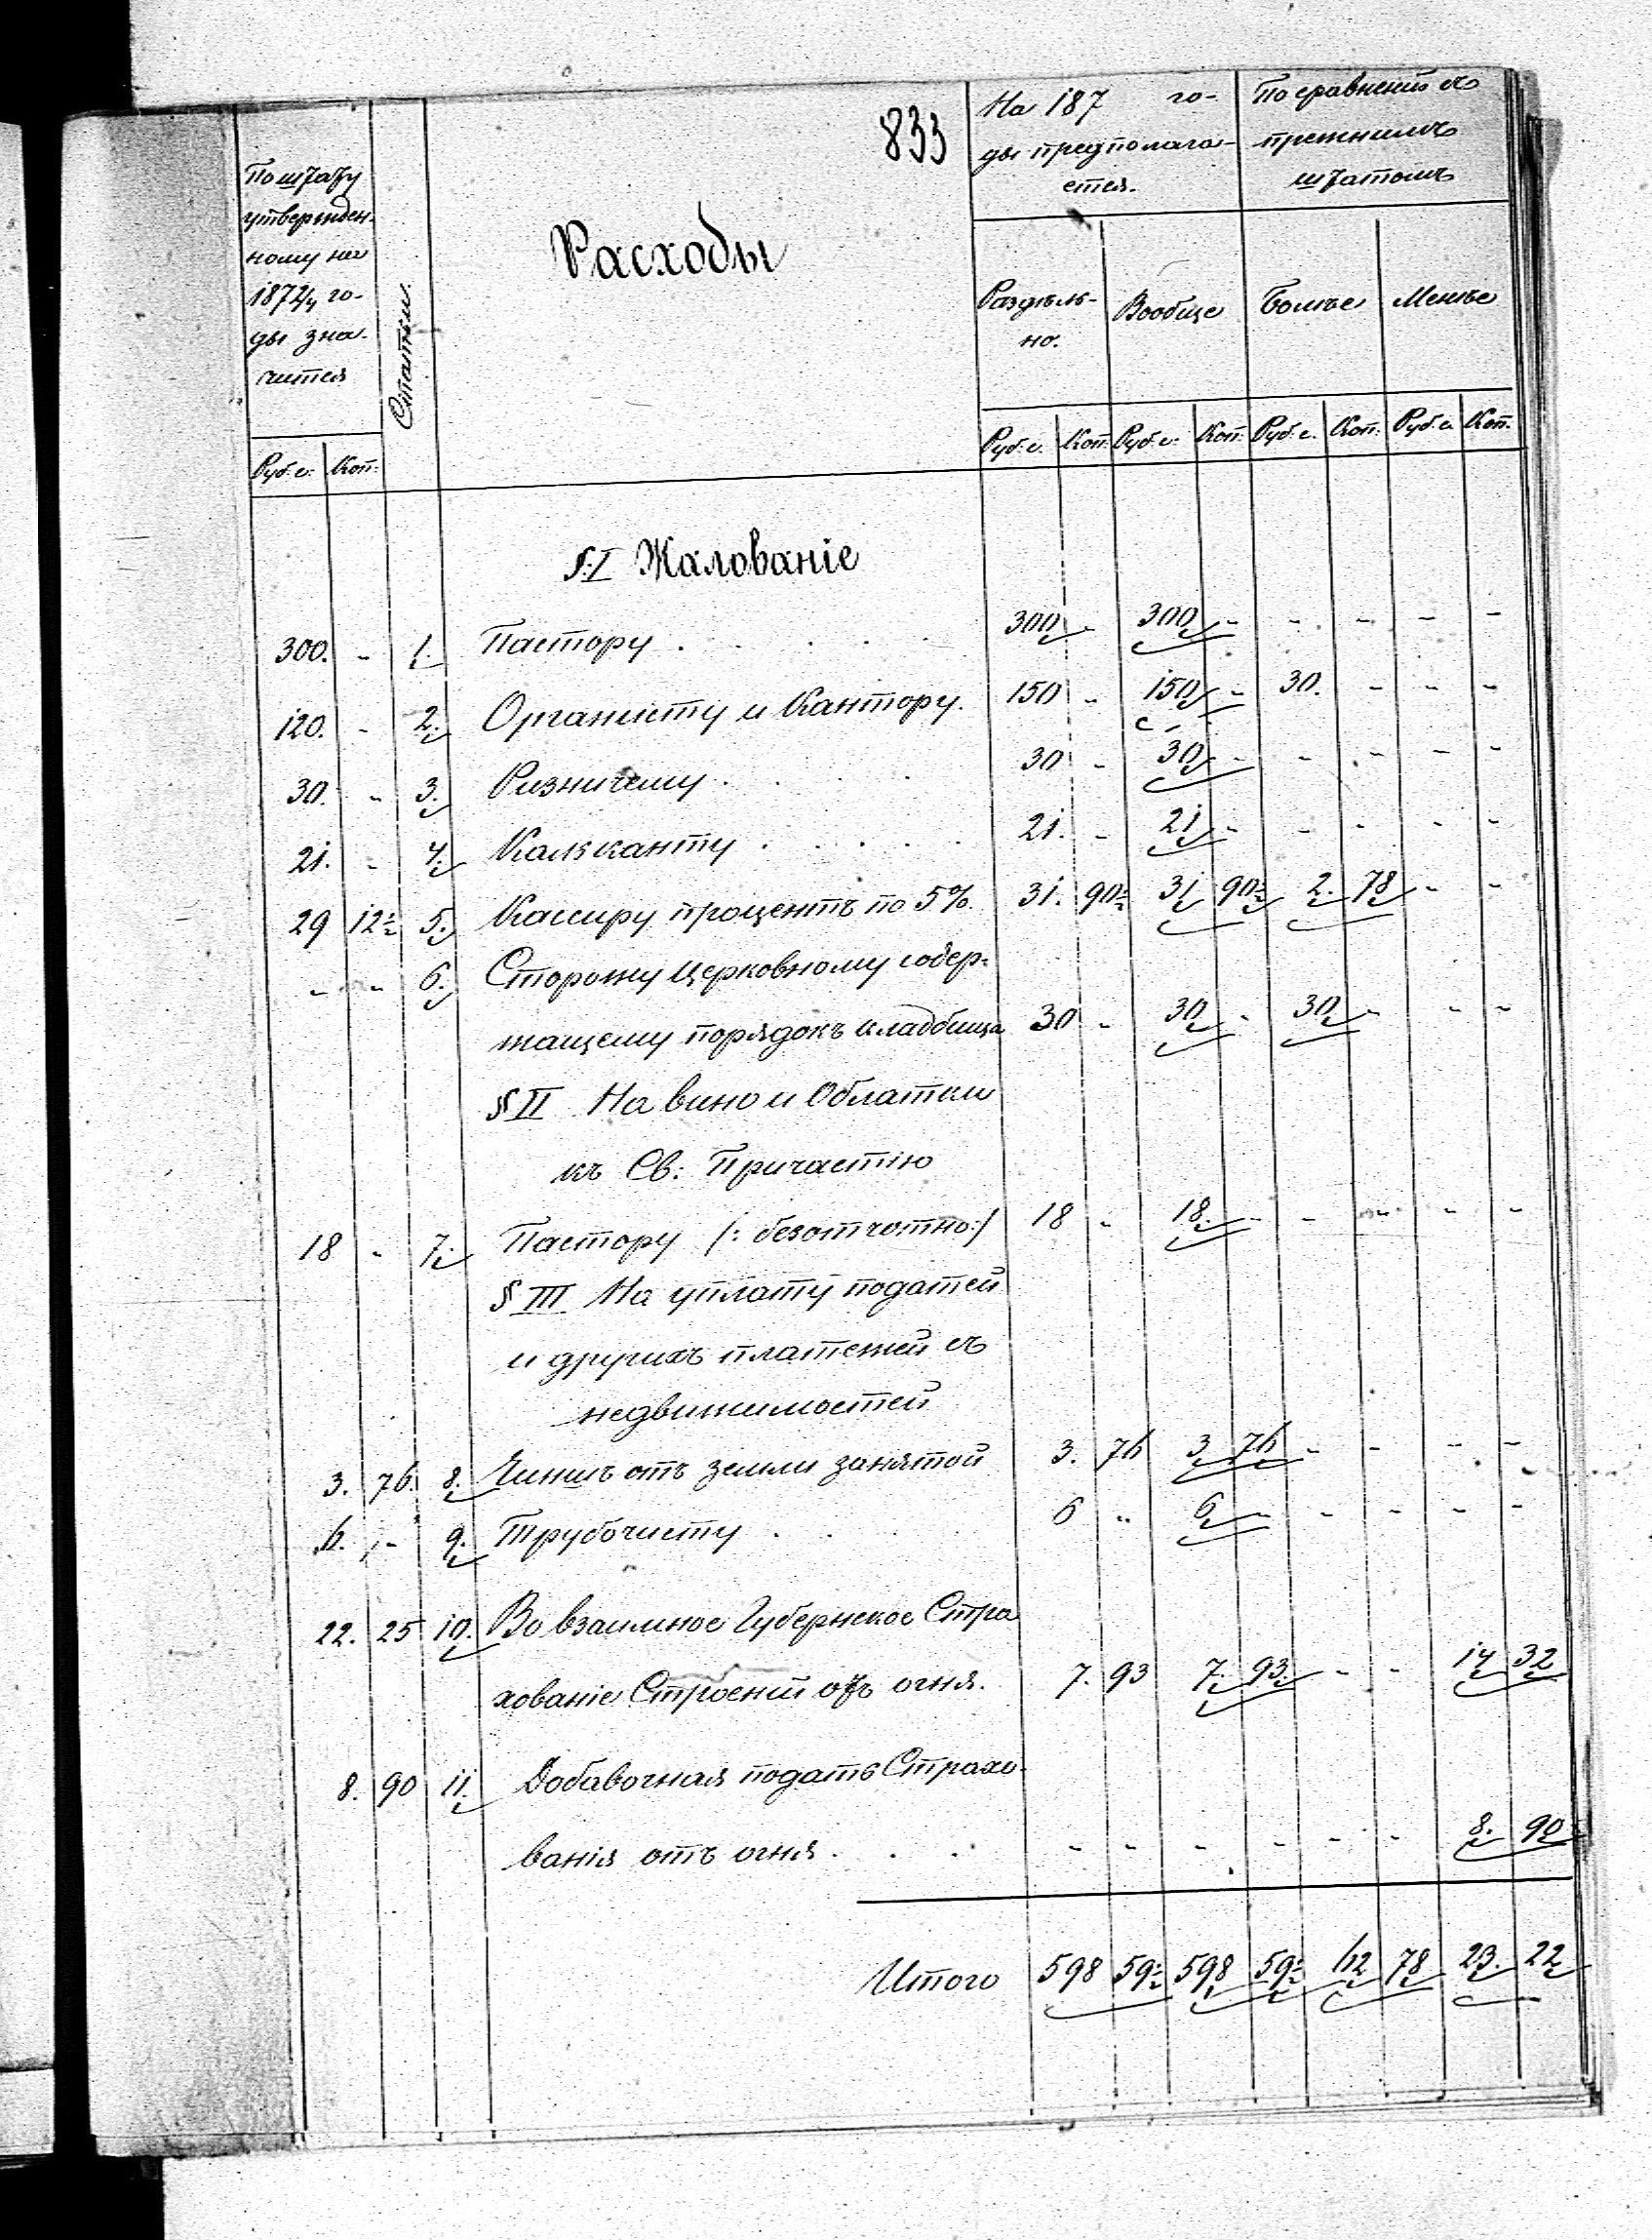 833
По штату
утвержден-
ному на
1872/4 го-
ды зна-
чится
Статьи.
Расходы
На 187 го-
ды предполага-
ется.
По сравненію съ
прежнимъ
штатомъ
Раздѣль-
но.
Вообще
Болѣе
Менѣе
Руб. с. Коп. Руб. с. Коп. Руб. с. Коп. Руб. с. Коп: Руб. с. Коп.
§. I Жалованіе
300. - 1. Пастору . . . . 300 - 300 - - - - -
120. - 2. Органисту и Кантору. 150 - 150 - 30. - - -
30. - 3. Ризничему . . . 30 - 30 - - - - -
21. - 4. Кальканту . . . . . 21. - 21 - - - - -
29 12½ 5. Кассиру процентъ по 5% 31. 90½ 31 90½ 2. 78 - -
- - 6. Сторожу церковному содер-
жащему порядокъ кладбища 30 - 30 - 30 - - -
§ II На вино и Облатки
къ Св: Причастію
18 - 7. Пастору /: безотчотно:/ 18 - 18. - - - - -
§ III На уплату податей
и другихъ платежей съ
недвижимостей
3. 76. 8. Чиншъ отъ земли занятой 3. 76 3 76 - - - -
6. - 9. Трубочисту . . . . 6 - 6 - - - - -
22. 25 10. Во взаимное Губернское Стра
хованіе Строеній отъ огня. 7. 93 7. 93. - - 14 32
8. 90 11. Добавочная подать Страхо-
ванія отъ огня . . . - - - - - - 8. 90
Итого 598 59½ 598 59½ 62 78 23. 22